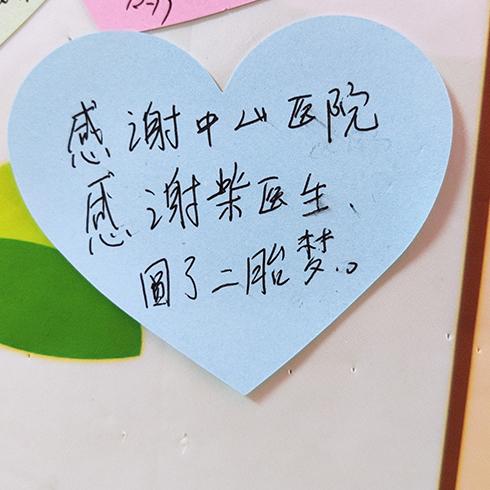 感谢中山医院
感谢柴医生、
圆了二胎梦。